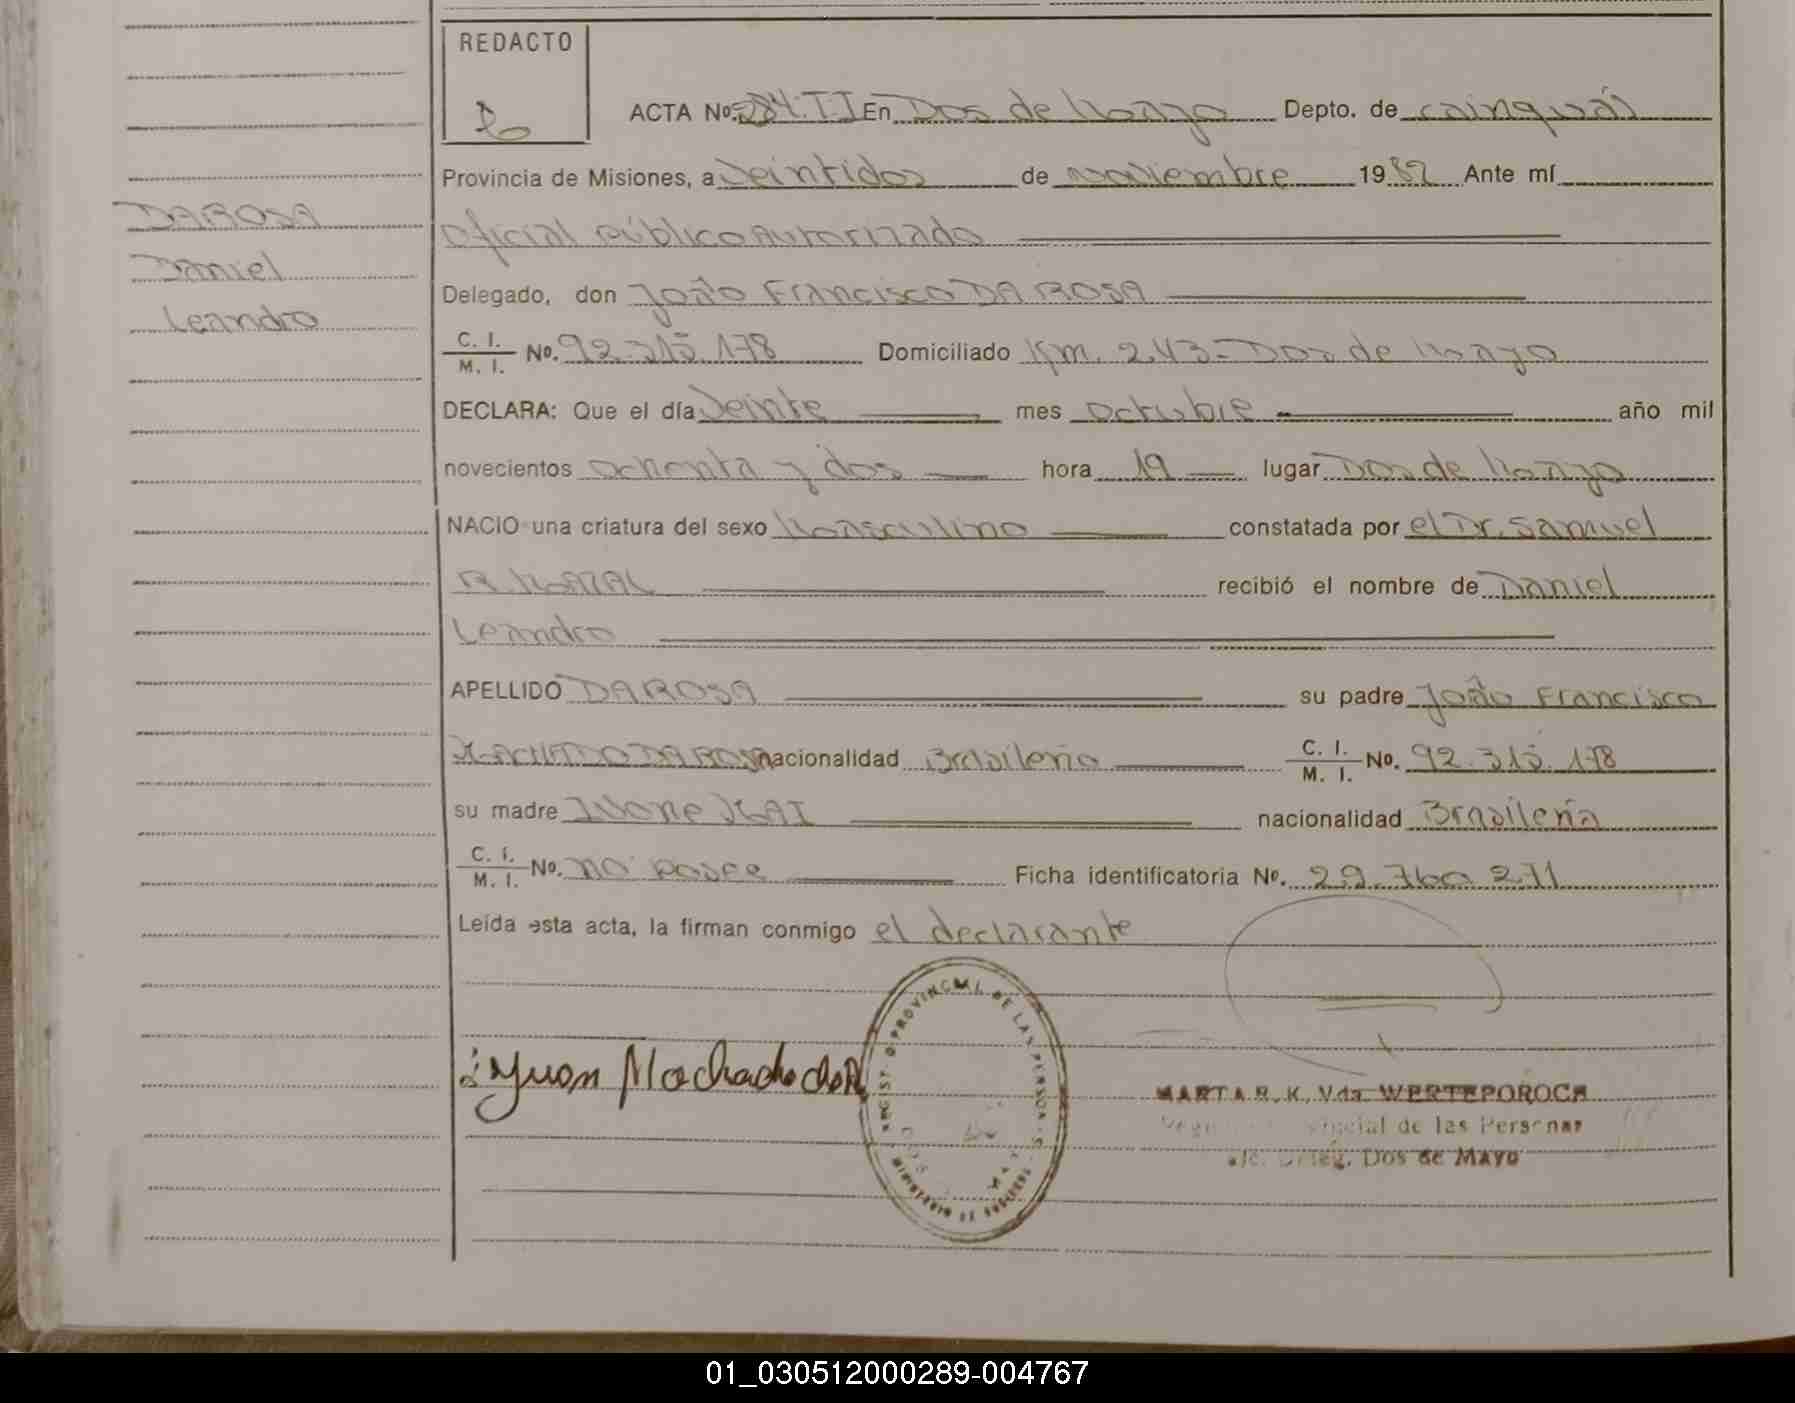 REDACTO
ACTA No. 284. TI En Dos de Mayo Depto. de cainguás
Provincia de Misiones, a Veintidos de noviembre 1982 Ante mí
oficial público Autorizado
DA ROSA
Daniel
Leandro
Delegado, don João Francisco DA ROSA
C. I. / M. I. No. 92.315.178 Domiciliado Km. 243-Dos de Mayo
DECLARA: Que el día Veinte mes octubre año mil
novecientos ochenta y dos hora 19 lugar Dos de Mayo
NACIO una criatura del sexo Masculino constatada por el Dr. Samuel
recibió el nombre de Daniel
Leandro
APELLIDO DA ROSA su padre João Francisco
MACHADO DA ROSA nacionalidad Brasileña C. I. / M. I. No. 92.315.178
su madre Ivone nacionalidad Brasileña
C. I. / M. I. No. no posee Ficha identificatoria No. 29.760.271
Leída esta acta, la firman conmigo el declarante
Juon Machado
MARTA R. K. Vda. WERTEPOROCH
de las Personas
Deleg. Dos de MAYO
01_030512000289-004767